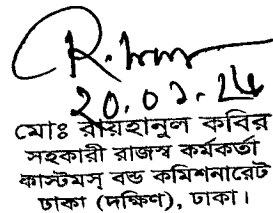 20.02.24
মোঃ রায়হানুল কবির
সহকারী রাজস্ব কর্মকর্তা
কাস্টমস্ বন্ড কমিশনারেট
ঢাকা (দক্ষিণ), ঢাকা।